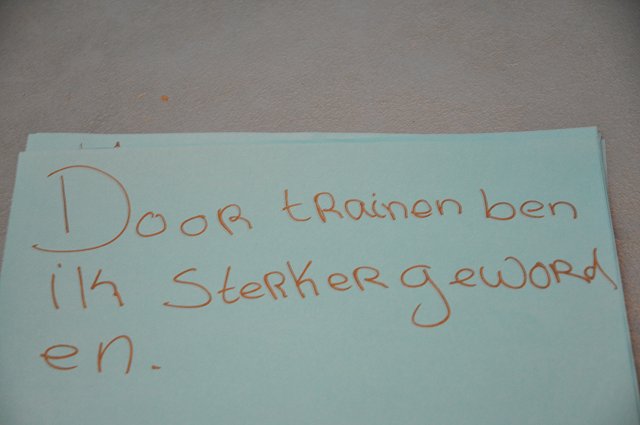 Door trainen ben
ik sterker geword
en.